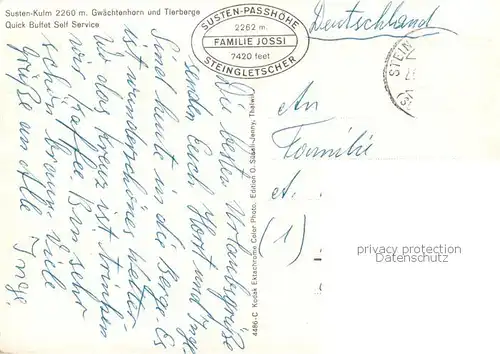 Susten-Kulm 2260 m. Gwächtenhorn und Tierberge
Quick Buffet Self Service
SUSTEN-PASSHÖHE
2262 m.
FAMILIE JOSSI
7420 feet
STEINGLETSCHER
Deutschland
STEIN
Die besten Urlaubsgrüße
senden Euch Horst und Inge.
Sind heute in die Berge. Es
ist wunderschönes Wetter.
wo das Kreuz ist trinken
wir Kaffee. Bin sehr
schön braun. Viele
Grüße an Alle
Inge.
4486-C Kodak Ektachrome Color Photo. Edition O. Süssli-Jenny, Thalwil
An
Familie
A.
(1)
privacy protection
VINTAGE POSTCARDS